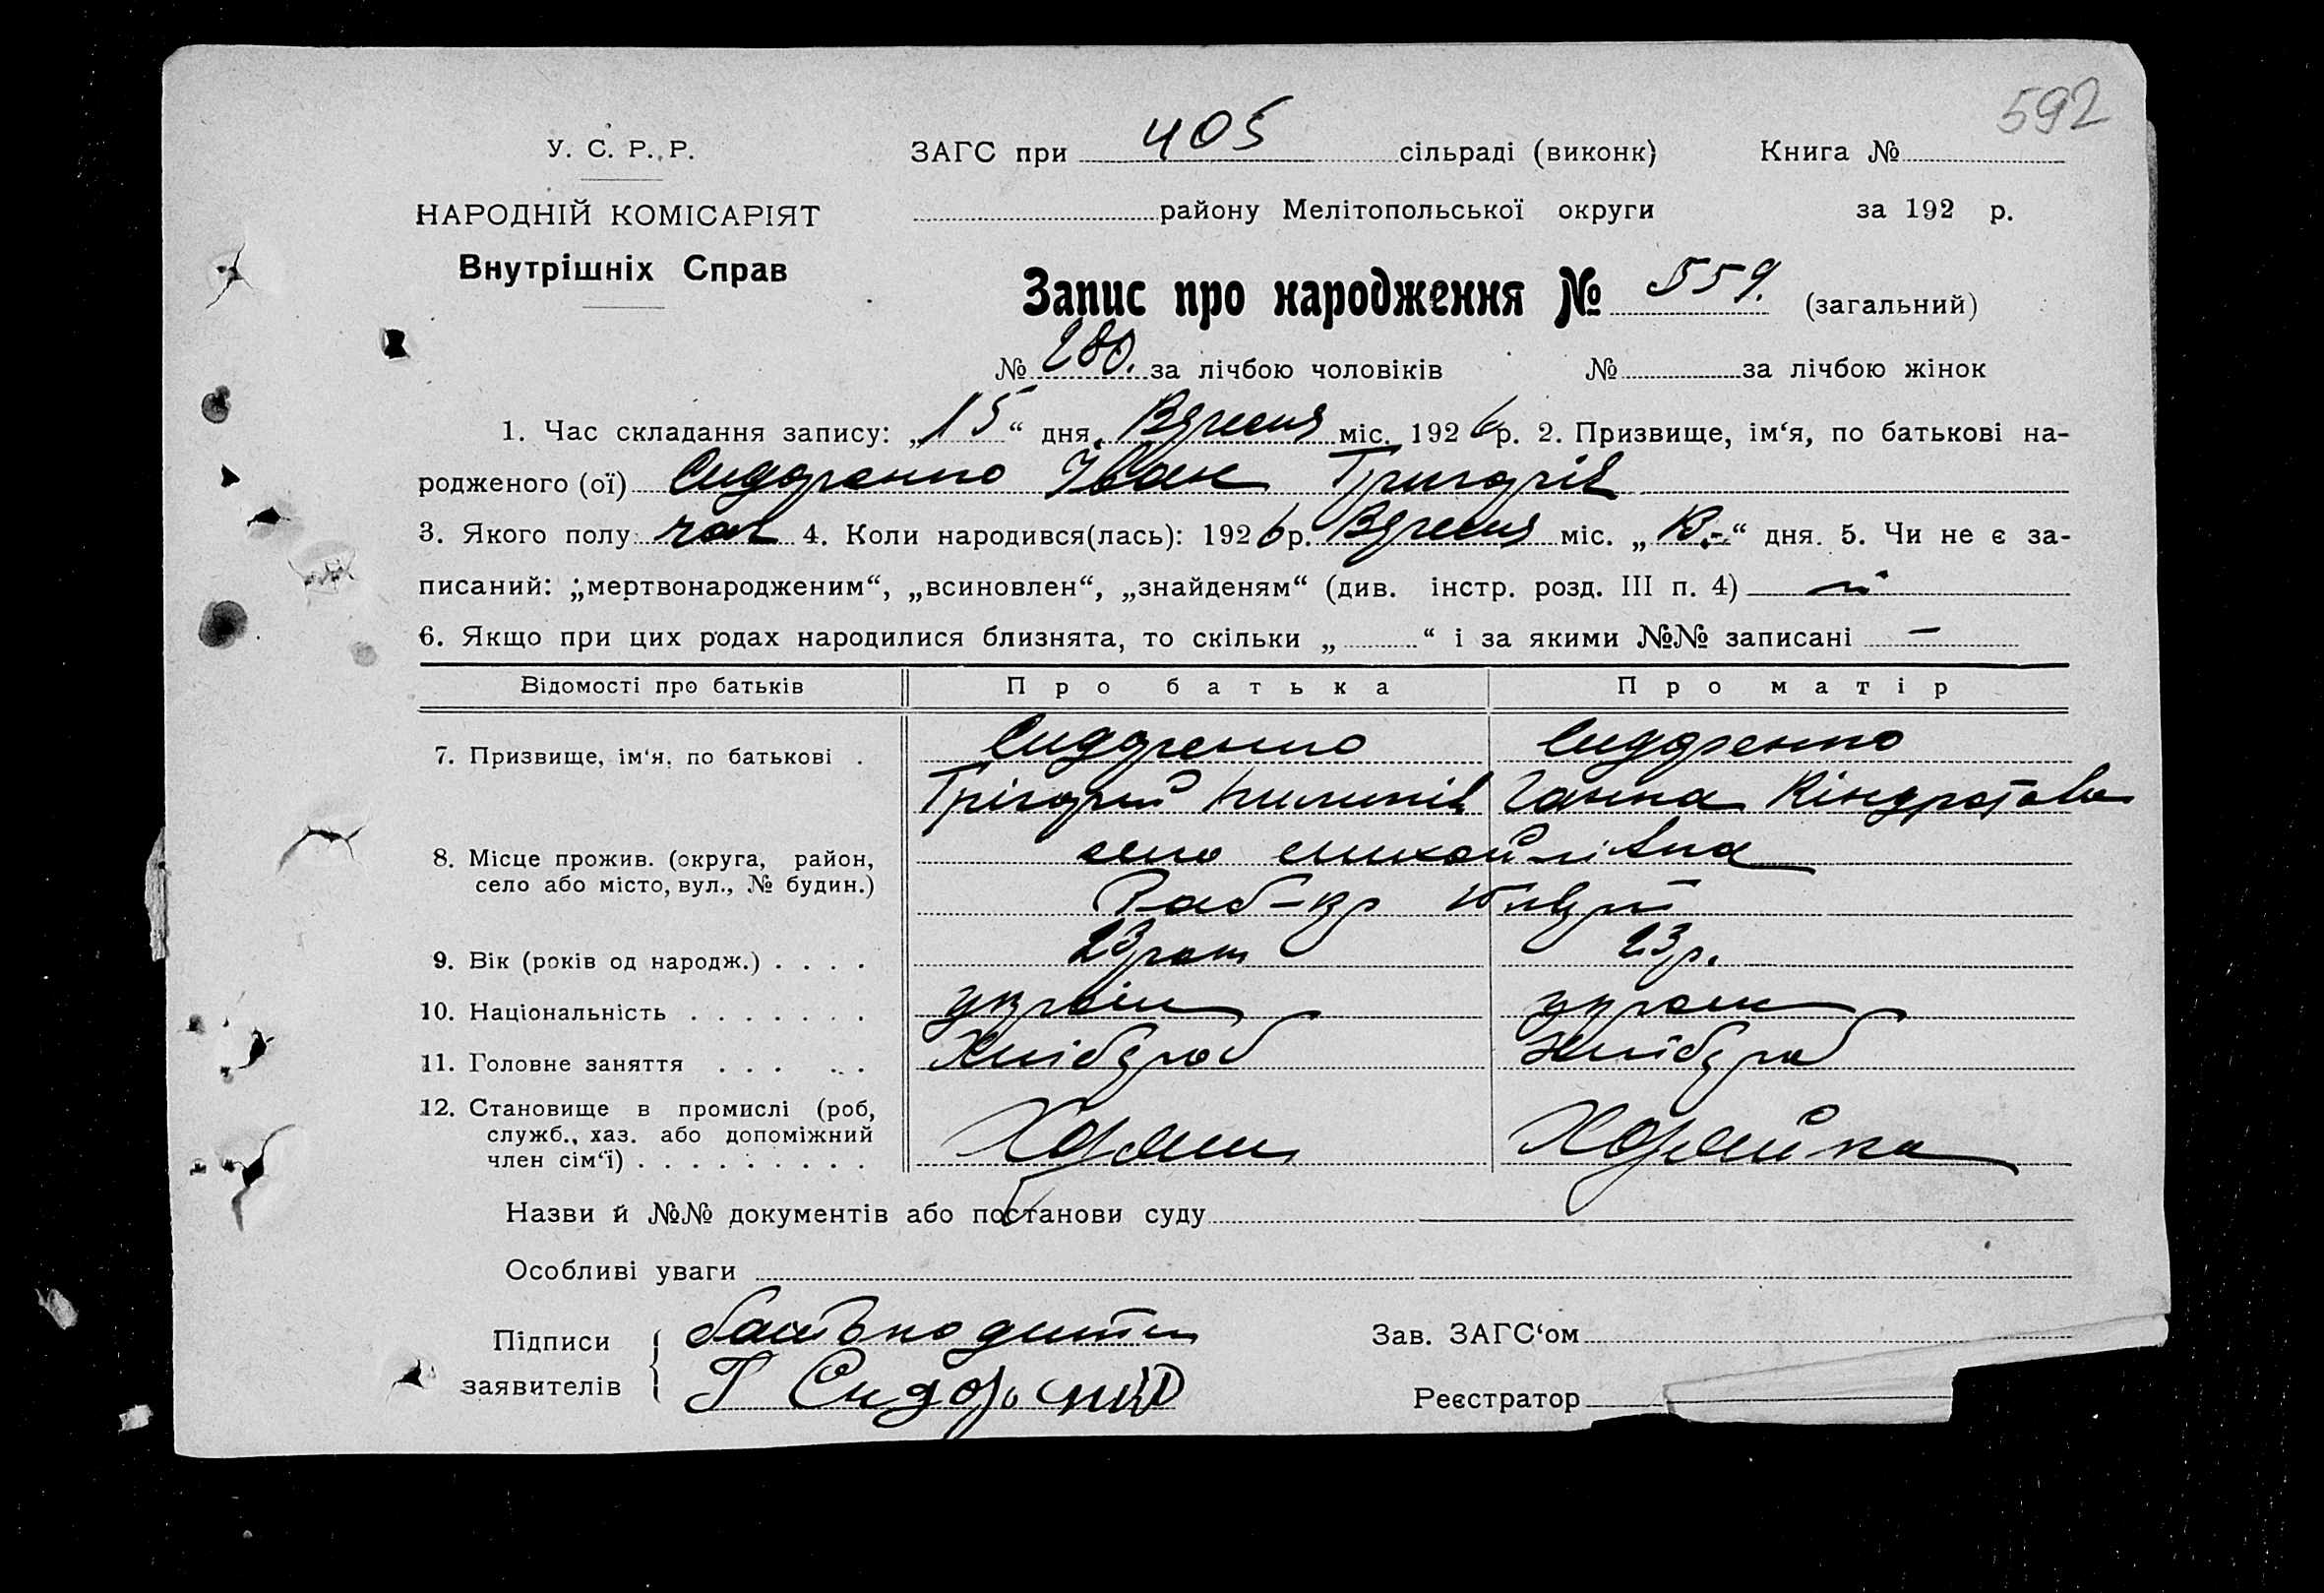 592
У. С. Р. Р.
ЗАГС при 405 сільраді (виконк) Книга №
НАРОДНІЙ КОМІСАРІЯТ
району Мелітопольської округи за 192 р.
Внутрішніх Справ
Запис про народження № 559. (загальний)
№ 280. за лічбою чоловіків № за лічбою жінок
1. Час складання запису: „15“ дня Вересня міс. 1926 р. 2. Призвище, ім‘я, по батькові на-
родженого (ої) Сидоренко Іван Григорів
3. Якого полу чол 4. Коли народився(лась): 1926 р. Вересня міс. „ “ дня. 5. Чи не є за-
писаний: „мертвонародженим“, „всиновлен“, „знайденям“ (див. інстр. розд. III п. 4) ні
6. Якщо при цих родах народилися близнята, то скільки „ “ і за якими №№ записані —
Відомості про батьків Про батька Про матір
7. Призвище, ім‘я, по батькові . Сидоренко Сидоренко
Грігорий Пилипів Ганна Кіндратова
8. Місце прожив. (округа, район, село або місто, вул., № будин.) село Михайлівка
9. Вік (років од народж.) . . . . 23 23 р.
10. Національність . . . . . . . україн украин
11. Головне заняття . . . . . Хлібороб Хлібороб
12. Становище в промислі (роб, служб., хаз. або допоміжний член сім‘ї) . . . . . . . . .
Назви й №№ документів або постанови суду
Особливі уваги
Підписи батько дитини Зав. ЗАГС‘ом
заявителів Г Сидоренко Реєстратор